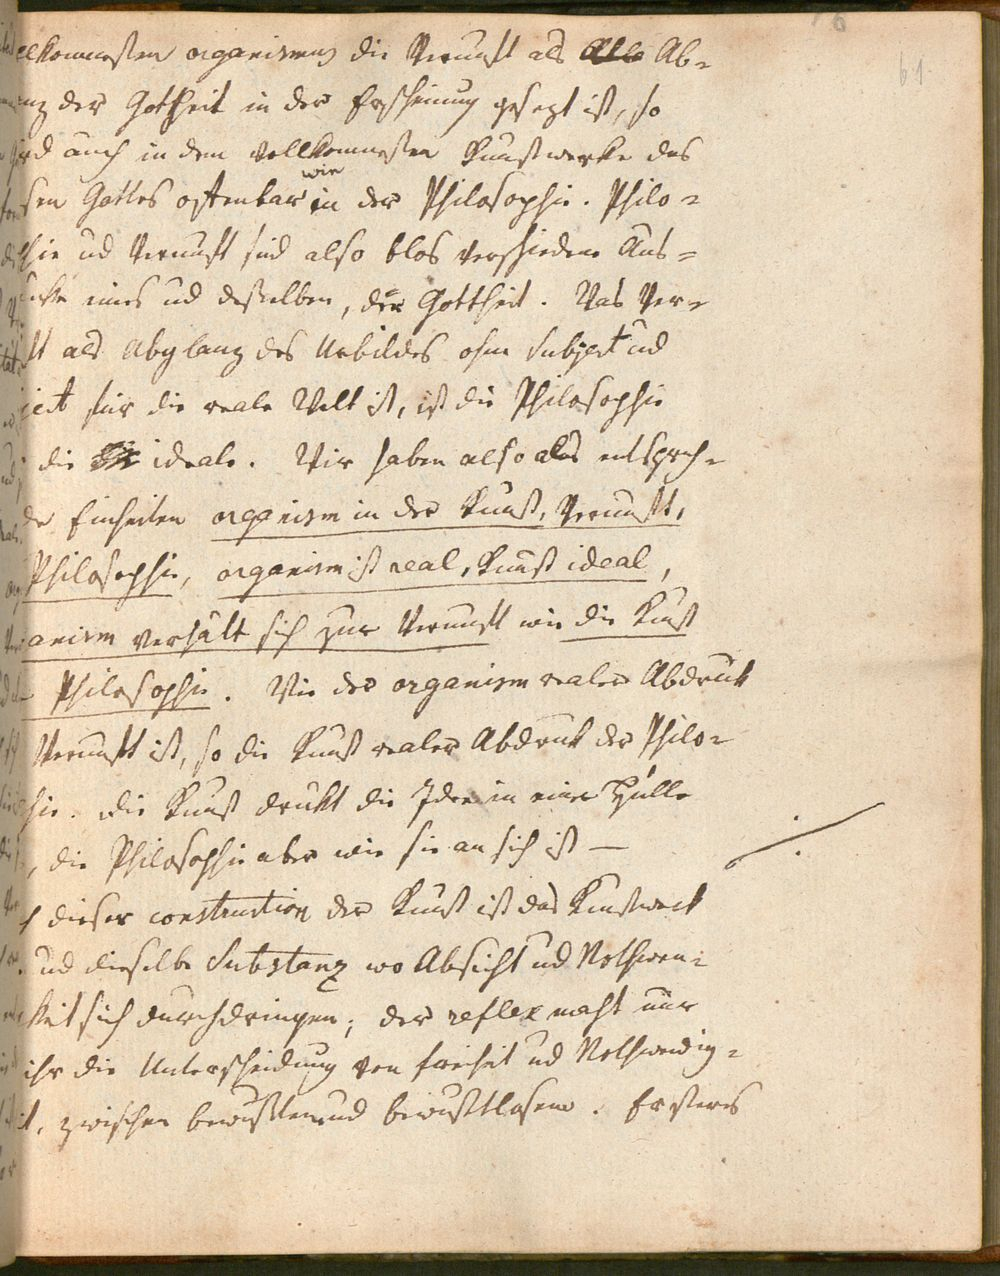 76
61
llkommensten organismus die Vernunft als Ab-
nz der Gottheit in der Erscheinung gesezt ist, so
rd auch in dem vollkommensten Kunstwerke das
wie
sen Gottes offenbar in der Philosophie. Philo-
hie ud Vernunft sind also blos verschiedene Aus-
ke eines ud desselben, der Gottheit. Was Ver-
ft als Abglanz des Urbildes ohne Subject ud
ject für die reale Welt ist, ist die Philosophie
die ideale. Wir haben also als entspreh-
de Einheiten organism in der Kunst, Vernunft,
Philosophie, organism ist real, Kunst ideal,
anism verhält sich zur Vernunft wie die Kunst
Philosophie. Wie der organism realer Abdruk
Vernunft ist, so die Kunst realer Abdruk der Philo-
hie. Die Kunst drukt die Idee in einer Hülle
, die Philosophie aber wie sie an sich ist —
dieser construction der Kunst ist das Kunstwerk
ud dieselbe Substanz wo Absicht ud Nothwen-
keit sich durchdringen; der reflex macht nur
ihr die Unterscheidung von Freiheit ud Nothwendig-
it, zwischen bewußten und bewußtlosem. Ersteres